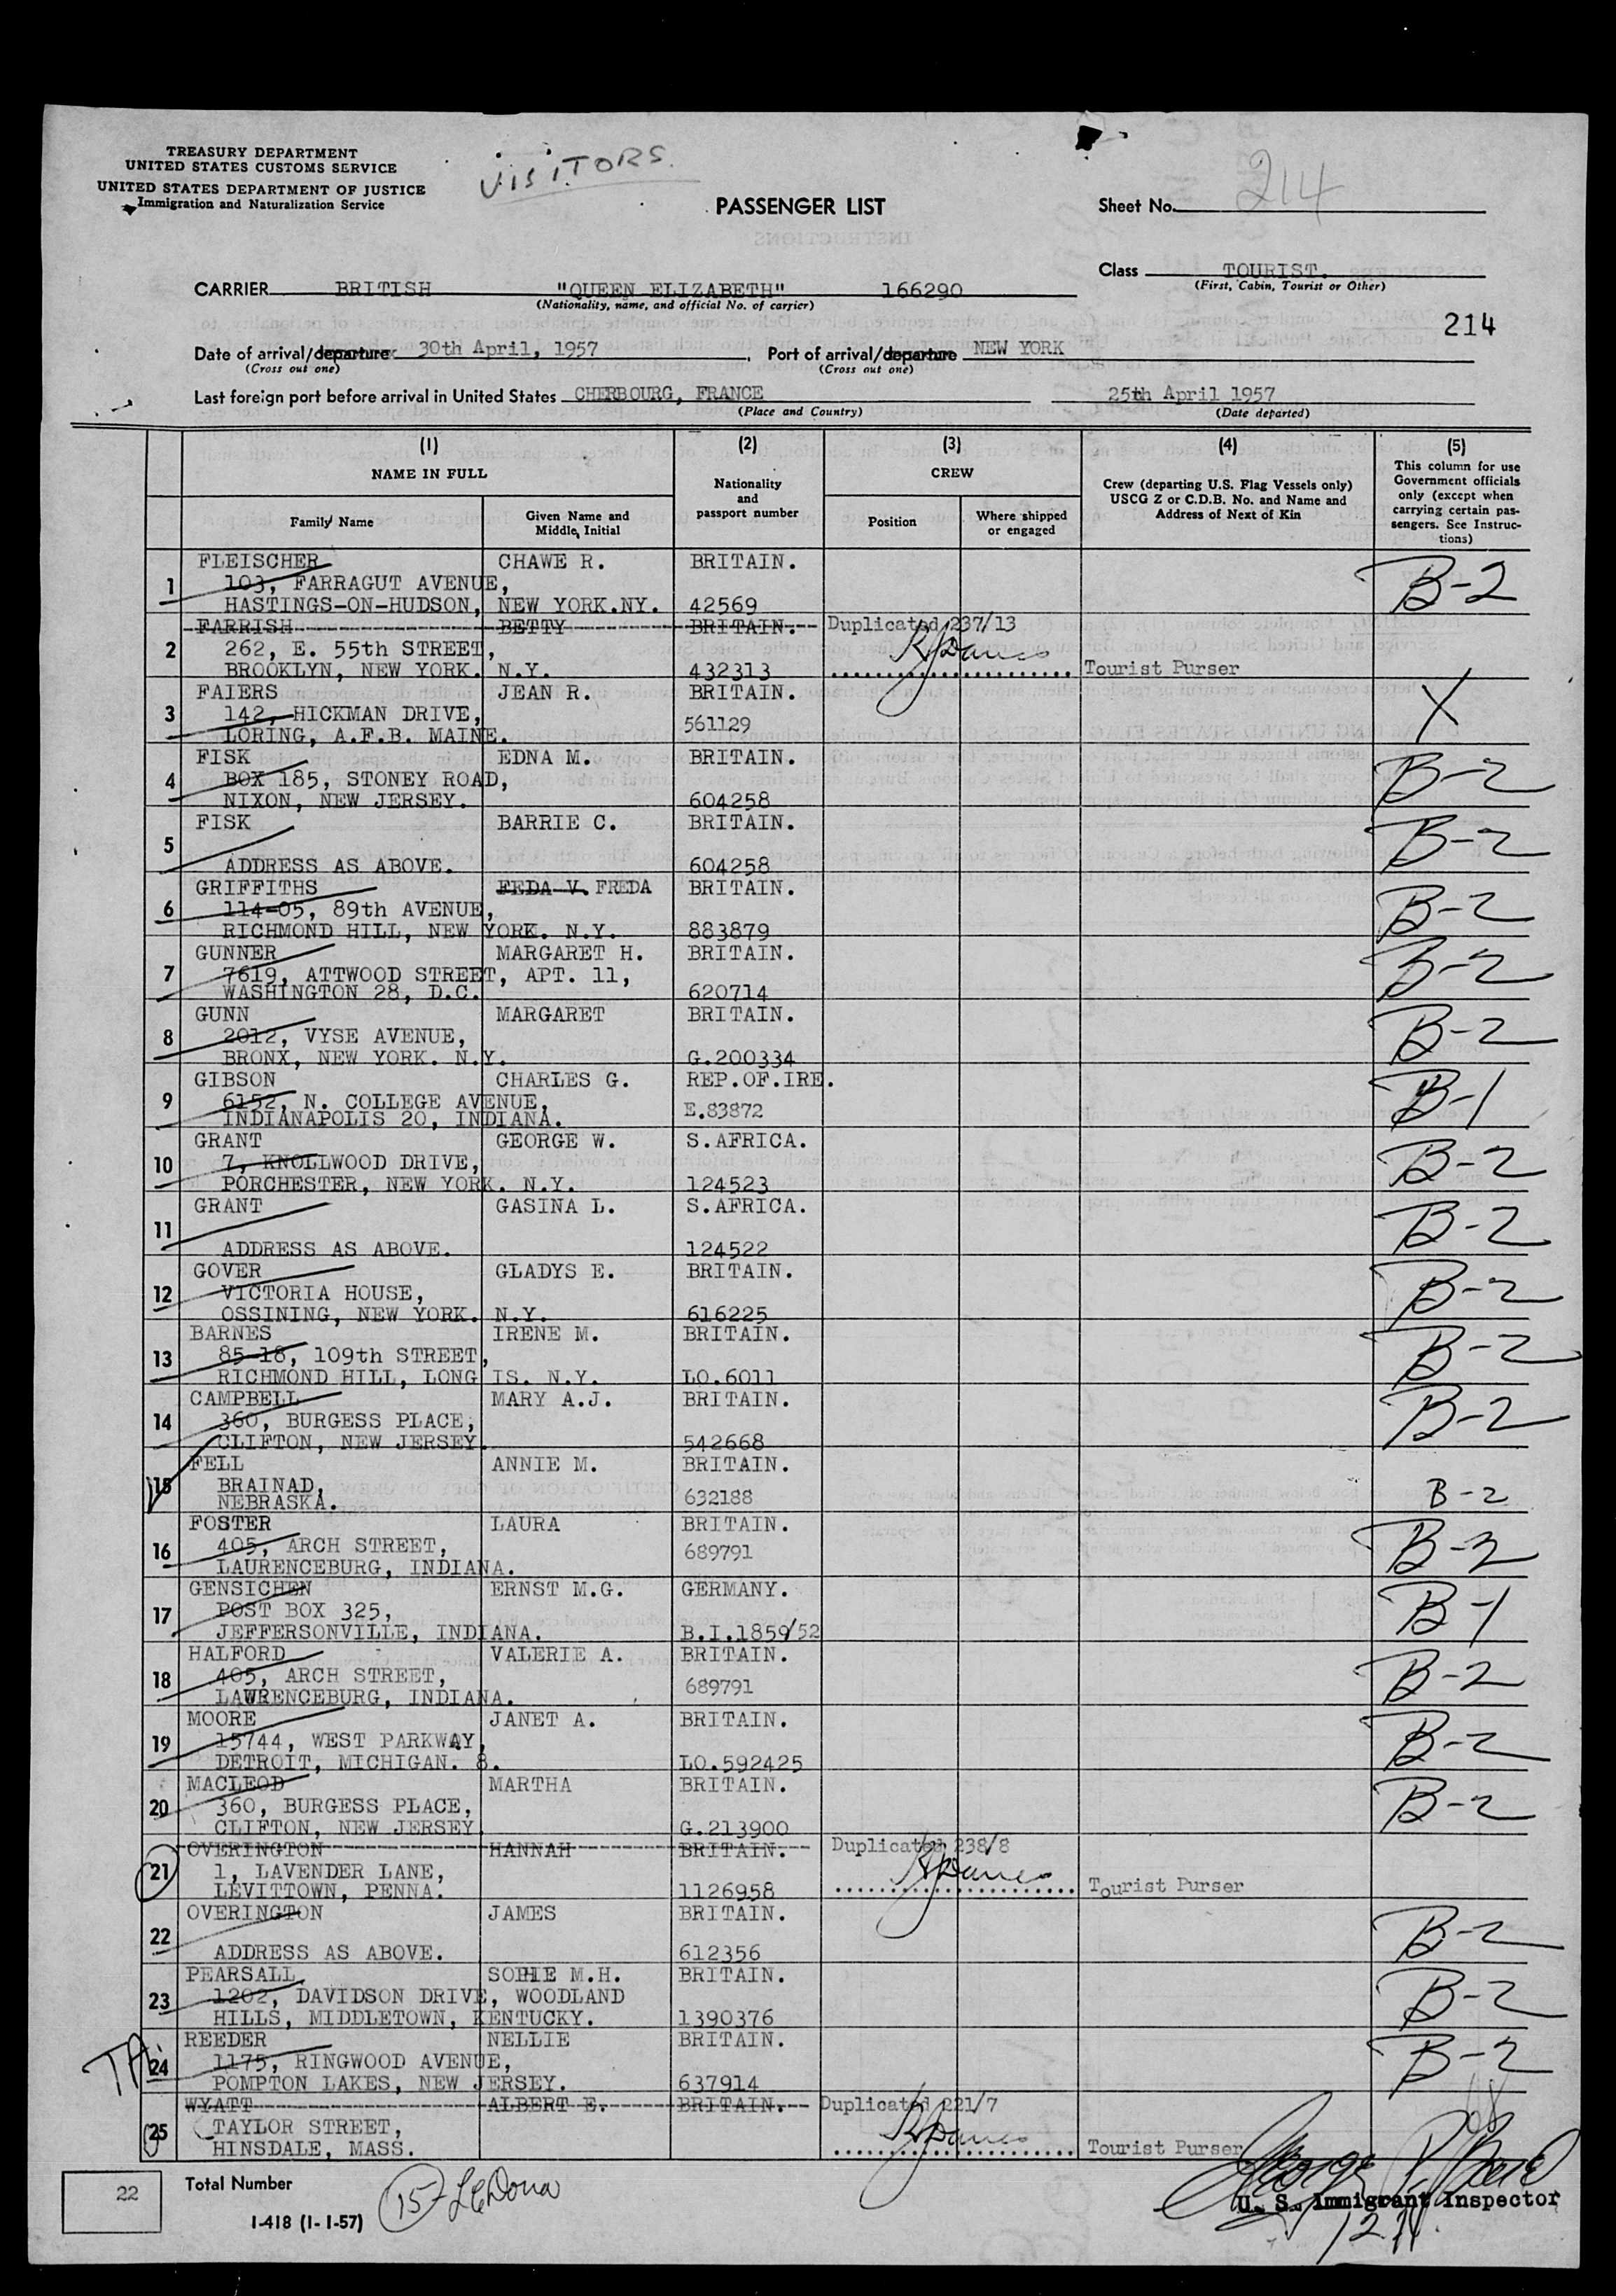 TREASURY DEPARTMENT
UNITED STATES CUSTOMS SERVICE
UNITED STATES DEPARTMENT OF JUSTICE
Immigration and Naturalization Service
VISITORS.
PASSENGER LIST
Sheet No. 214
Class TOURIST.
(First, Cabin, Tourist or Other)
CARRIER BRITISH "QUEEN ELIZABETH" 166290
(Nationality, name, and official No. of carrier)
214
Date of arrival/departure 30th April, 1957, Port of arrival/departure NEW YORK
(Cross out one) (Cross out one)
Last foreign port before arrival in United States CHERBOURG, FRANCE 25th April 1957
(Place and Country) (Date departed)
(1) NAME IN FULL
Family Name
Given Name and Middle Initial
(2) Nationality and passport number
(3) CREW
Position
Where shipped or engaged
(4) Crew (departing U.S. Flag Vessels only) USCG Z or C.D.B. No. and Name and Address of Next of Kin
(5) This column for use Government officials only (except when carrying certain passengers. See Instructions)
1 FLEISCHER CHAWE R. BRITAIN. B-2
103, FARRAGUT AVENUE,
HASTINGS-ON-HUDSON, NEW YORK.NY. 42569
2 FARRISH BETTY BRITAIN. Duplicated 237/13
262, E. 55th STREET,
BROOKLYN, NEW YORK. N.Y. 432313 Tourist Purser
3 FAIERS JEAN R. BRITAIN. X
142, HICKMAN DRIVE, 561129
LORING, A.F.B. MAINE.
4 FISK EDNA M. BRITAIN. B-2
BOX 185, STONEY ROAD,
NIXON, NEW JERSEY. 604258
5 FISK BARRIE C. BRITAIN. B-2
ADDRESS AS ABOVE. 604258
6 GRIFFITHS FEDA V. FREDA BRITAIN. B-2
114-05, 89th AVENUE,
RICHMOND HILL, NEW YORK. N.Y. 883879
7 GUNNER MARGARET H. BRITAIN. B-2
7619, ATTWOOD STREET, APT. 11,
WASHINGTON 28, D.C. 620714
8 GUNN MARGARET BRITAIN. B-2
2012, VYSE AVENUE,
BRONX, NEW YORK. N.Y. G.200334
9 GIBSON CHARLES G. REP.OF.IRE. B-1
6152, N. COLLEGE AVENUE, E.83872
INDIANAPOLIS 20, INDIANA.
10 GRANT GEORGE W. S.AFRICA. B-2
7, KNOLLWOOD DRIVE,
PORCHESTER, NEW YORK. N.Y. 124523
11 GRANT GASINA L. S.AFRICA. B-2
ADDRESS AS ABOVE. 124522
12 GOVER GLADYS E. BRITAIN. B-2
VICTORIA HOUSE,
OSSINING, NEW YORK. N.Y. 616225
13 BARNES IRENE M. BRITAIN. B-2
85-18, 109th STREET,
RICHMOND HILL, LONG IS. N.Y. LO.6011
14 CAMPBELL MARY A.J. BRITAIN. B-2
360, BURGESS PLACE,
CLIFTON, NEW JERSEY. 542668
15 FELL ANNIE M. BRITAIN.
BRAINAD, 632188 B-2
NEBRASKA.
16 FOSTER LAURA BRITAIN. B-2
405, ARCH STREET, 689791
LAURENCEBURG, INDIANA.
17 GENSICHEN ERNST M.G. GERMANY. B-1
POST BOX 325,
JEFFERSONVILLE, INDIANA. B.I.1859/52
18 HALFORD VALERIE A. BRITAIN. B-2
405, ARCH STREET, 689791
LAWRENCEBURG, INDIANA.
19 MOORE JANET A. BRITAIN. B-2
15744, WEST PARKWAY,
DETROIT, MICHIGAN. 8. LO.592425
20 MACLEOD MARTHA BRITAIN. B-2
360, BURGESS PLACE,
CLIFTON, NEW JERSEY. G.213900
21 OVERINGTON HANNAH BRITAIN. Duplicated 238/8
1, LAVENDER LANE,
LEVITTOWN, PENNA. 1126958 Tourist Purser
22 OVERINGTON JAMES BRITAIN. B-2
ADDRESS AS ABOVE. 612356
23 PEARSALL SOPHIE M.H. BRITAIN. B-2
1202, DAVIDSON DRIVE, WOODLAND
HILLS, MIDDLETOWN, KENTUCKY. 1390376
24 REEDER NELLIE BRITAIN. B-2
1175, RINGWOOD AVENUE,
POMPTON LAKES, NEW JERSEY. 637914
25 WYATT ALBERT E. BRITAIN. Duplicated 221/7
TAYLOR STREET,
HINSDALE, MASS. Tourist Purser
22 Total Number
U. S. Immigrant Inspector
I-418 (1-1-57)